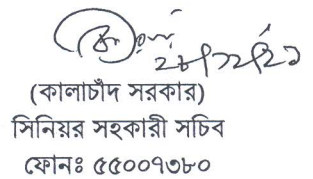 (কালাচাঁদ সরকার)
সিনিয়র সহকারী সচিব
ফোনঃ ৫৫০০৭৩৮০